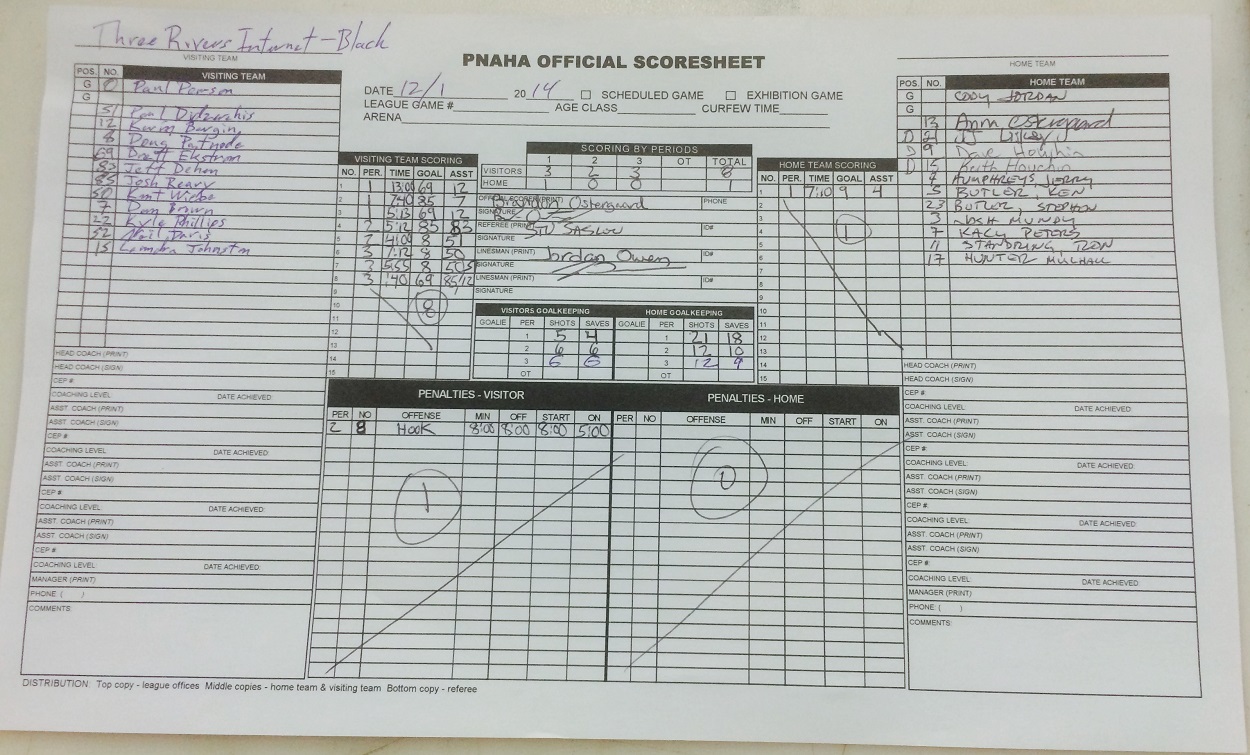 Three Rivers Internet - Black
VISITING TEAM
PNAHA OFFICIAL SCORESHEET
HOME TEAM
DATE 12/1 2014 SCHEDULED GAME EXHIBITION GAME
LEAGUE GAME # AGE CLASS CURFEW TIME
ARENA
POS. NO. VISITING TEAM
G 0 Paul Person
G
51 Paul
12 Kevin Burgin
8 Doug
69 Brett Ekstrom
83 Jeff Dehen
85 Josh Reavy
50 Kent Wiebe
7 Dan Brown
22 Kyle Phillips
52 Neil Davis
15 Landra Johnston
HEAD COACH (PRINT)
HEAD COACH (SIGN)
CEP #
COACHING LEVEL DATE ACHIEVED:
ASST. COACH (PRINT)
ASST. COACH (SIGN)
CEP #
COACHING LEVEL DATE ACHIEVED:
ASST. COACH (PRINT)
ASST. COACH (SIGN)
CEP #
COACHING LEVEL DATE ACHIEVED:
ASST. COACH (PRINT)
ASST. COACH (SIGN)
CEP #
COACHING LEVEL DATE ACHIEVED:
MANAGER (PRINT)
PHONE ( )
COMMENTS:
VISITING TEAM SCORING
NO. PER. TIME GOAL ASST
1 1 13:00 69 12
2 7:40 85 7
3 5:13 69 12
4 2 5:12 85 83
5 2 4:00 8 51
6 3 7:12 8 50
7 3 5:55 8
8 3 :40 69 85/12
9
10 8
11
12
13
14
15
SCORING BY PERIODS
1 2 3 OT TOTAL
VISITORS 3 2 3 8
HOME 1 0 0 1
OFFICIAL SCORER (PRINT) Brandon Ostergaard PHONE
SIGNATURE
REFEREE (PRINT) STU SASLOW ID#
SIGNATURE
LINESMAN (PRINT) Jordan Owen ID#
SIGNATURE
LINESMAN (PRINT) ID#
SIGNATURE
VISITORS GOALKEEPING HOME GOALKEEPING
GOALIE PER SHOTS SAVES GOALIE PER SHOTS SAVES
1 5 4 1 21 18
2 6 6 2 12 10
3 6 6 3 12 9
OT OT
HOME TEAM SCORING
NO. PER. TIME GOAL ASST
1 1 7:10 9 4
2
3
4 1
5
6
7
8
9
10
11
12
13
14
15
POS. NO. HOME TEAM
G CODY JORDAN
G
13 Ostergaard
D 21
D 9 Dave Houchin
D 15 Keith Houchin
4 HUMPHREYS, JERRY
5 BUTLER, KEN
23 BUTLER, STEPHEN
3 JOSH MUNDY
7 KACY PETERS
11 STANDRING, RON
17 HUNTER MULHALL
HEAD COACH (PRINT)
HEAD COACH (SIGN)
CEP #
COACHING LEVEL DATE ACHIEVED:
ASST. COACH (PRINT)
ASST. COACH (SIGN)
CEP #
COACHING LEVEL: DATE ACHIEVED:
ASST. COACH (PRINT)
ASST. COACH (SIGN)
CEP #
COACHING LEVEL: DATE ACHIEVED:
ASST. COACH (PRINT)
ASST. COACH (SIGN)
CEP #:
COACHING LEVEL: DATE ACHIEVED:
MANAGER (PRINT)
PHONE ( )
COMMENTS:
PENALTIES - VISITOR PENALTIES - HOME
PER NO OFFENSE MIN OFF START ON PER NO OFFENSE MIN OFF START ON
2 8 HOOK 8:00 8:00 8:00 5:00
1 0
DISTRIBUTION: Top copy - league offices Middle copies - home team & visiting team Bottom copy - referee